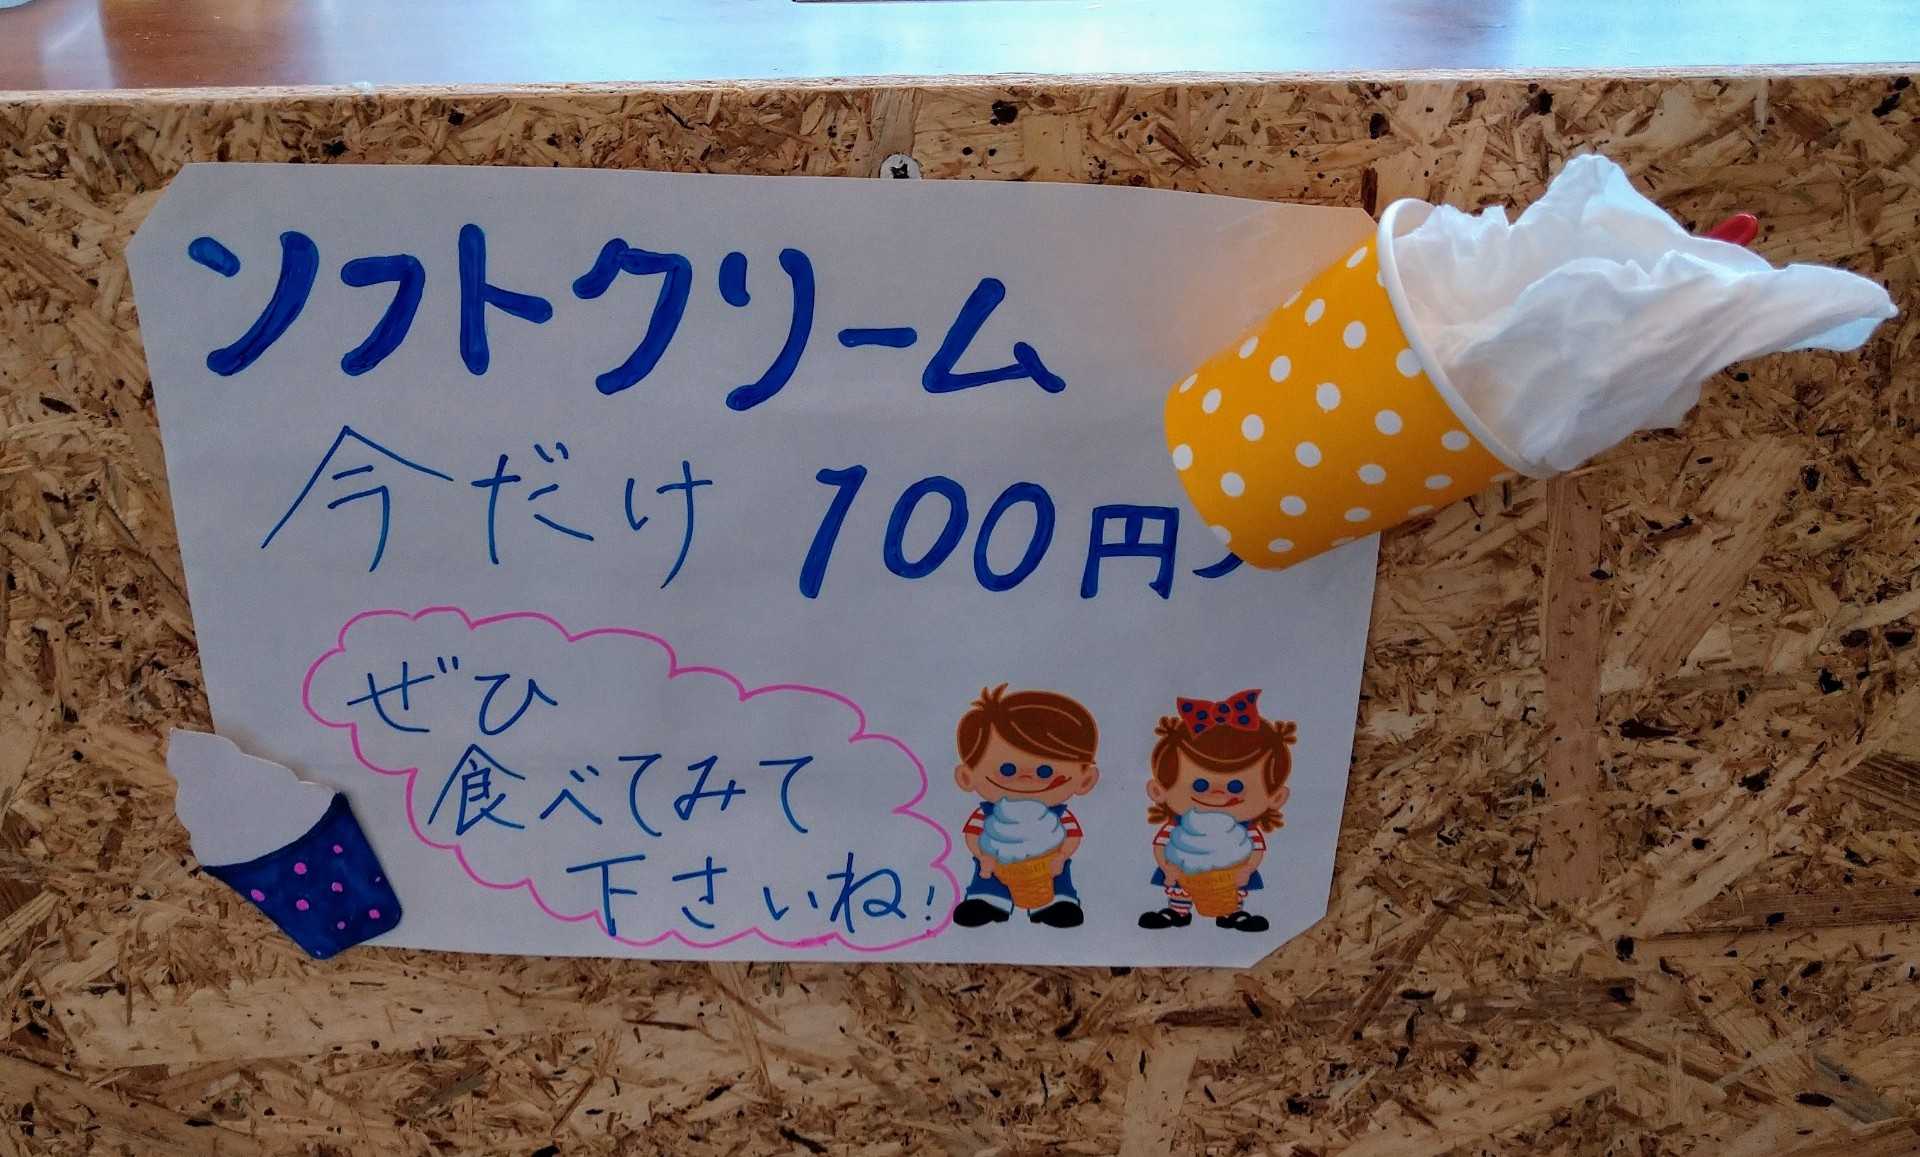 ソフトクリーム
今だけ 100円
ぜひ
食べてみて
下さいね!